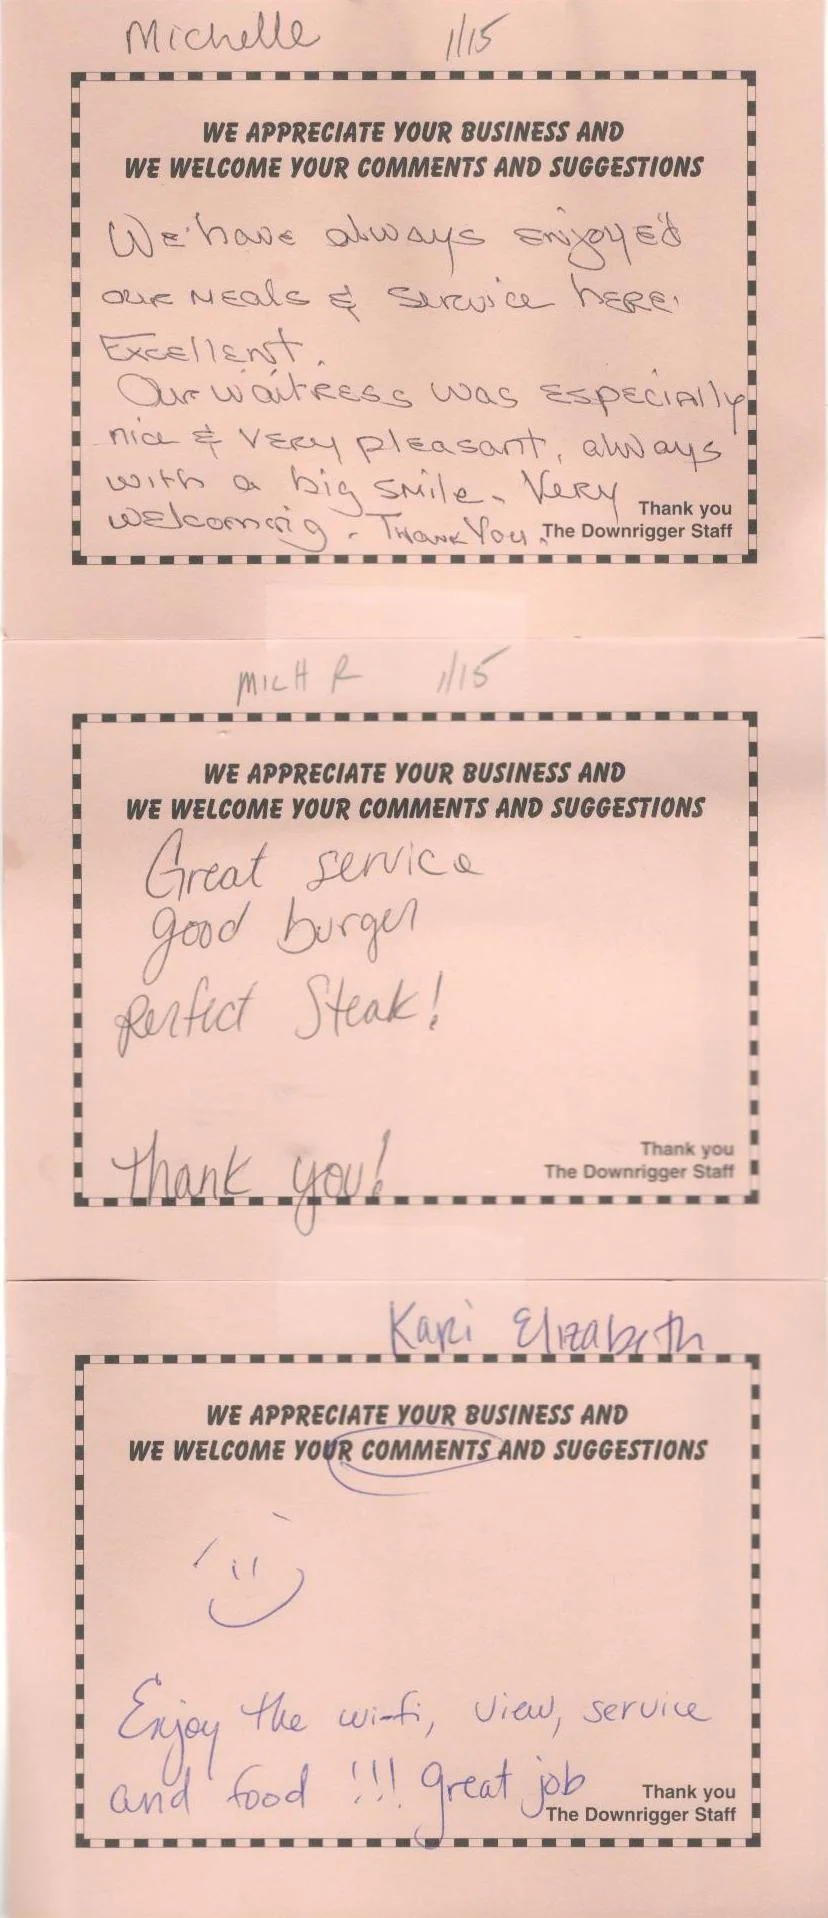 Michelle 1/15
WE APPRECIATE YOUR BUSINESS AND
WE WELCOME YOUR COMMENTS AND SUGGESTIONS
We have always enjoyed
our meals & service here.
Excellent.
Our waitress was especially
nice & very pleasant, always
with a big smile. Very
welcoming. Thank You.
Thank you
The Downrigger Staff
MICH R 1/15
WE APPRECIATE YOUR BUSINESS AND
WE WELCOME YOUR COMMENTS AND SUGGESTIONS
Great service
good burger
perfect steak!
Thank you!
Thank you
The Downrigger Staff
Kari Elizabeth
WE APPRECIATE YOUR BUSINESS AND
WE WELCOME YOUR COMMENTS AND SUGGESTIONS
Enjoy the wi-fi, view, service
and food !!! great job
Thank you
The Downrigger Staff